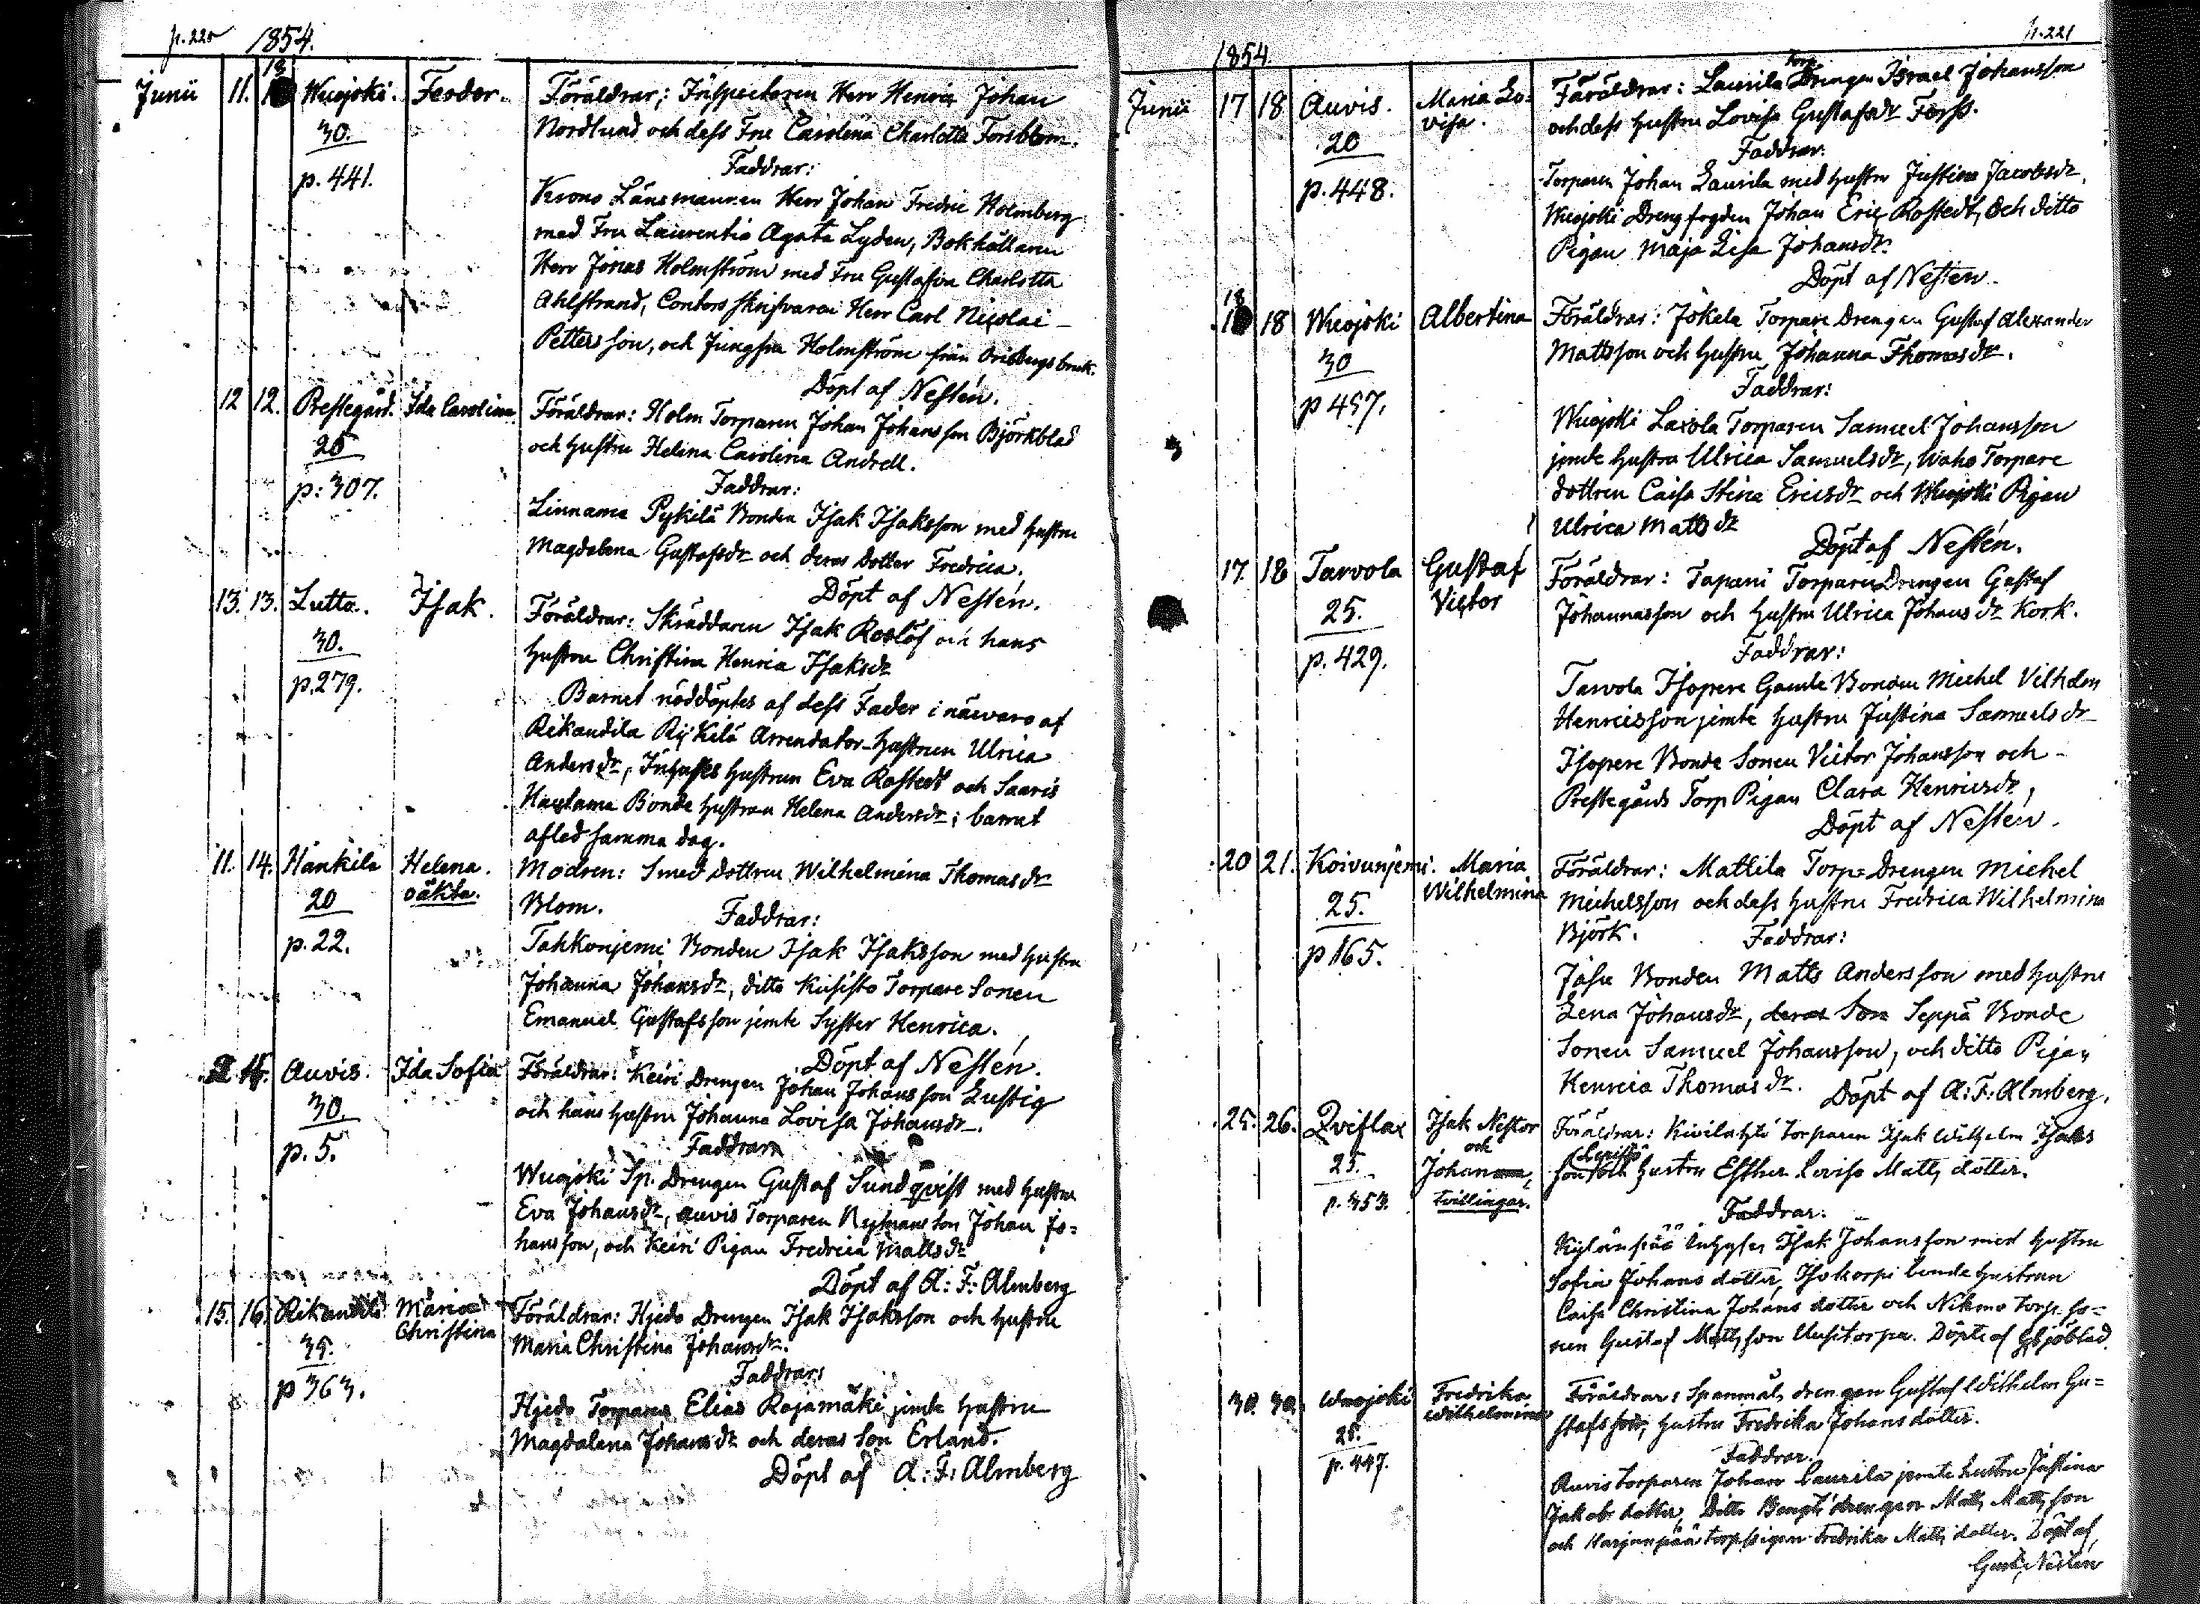 p. 220
1854.
Junii 11. 13 Wuojoki. Feodor. Föräldrar: Inspectoren Herr Henric Johan
30. Nordlund och dess Fru Carolina Charlotta Forsblom.
Faddrar:
p. 441. Krono Länsmannen Herr Johan Fredric Holmberg
med Fru Laurentia Agata Lyden, Bokhållaren
Herr Jonas Holmström med Fru Gustafva Charlotta
Ahlstrand, Contors skrifvaren Herr Carl Nicolai
Pettersson, och Jungfru Holmström från Orisbergs bruk.
Döpt af Nestén.
12 12. Prestegård. Ida Carolina Föräldrar: Holm Torparen Johan Johansson Björkblad
25 och hustru Helena Carolina Andrell.
p: 307. Faddrar:
Linnama Pykilä Bonden Isak Isaksson med hustru
Magdalena Gustafsdr och deras dotter Fredrica.
Döpt af Nestén.
13. 13. Lutta. Isak. Föräldrar: Skräddaren Isak Roslöf och hans
30. hustru Christina Henrica Isaksdr
p. 279. Barnet nöddöptes af dess Fader i närvaro af
Rikandila Rykilä Arrendator-hustrun Ulrica
Andersdr, Inhyses hustrun Eva Rostedt och Saaris
Hautama Bonde hustrun Helena Andersdr; barnet
afled samma dag.
11. 14. Hankila Helena. Modren: Smed dottren Wilhelmina Thomasdr
20 oäkta. Blom. Faddrar:
p. 22. Tahkonjemi Bonden Isak Isaksson med hustru
Johanna Johansdr, ditto Kusisto Torpare Sonen
Emanuel Gustafsson jemte Syster Henrica.
Döpt af Nestén.
15. Auvis. Ida Sofia Föräldrar: Keiri Drengen Johan Johansson Lustig
30. och hans hustru Johanna Lovisa Johansdr.
p. 5. Faddrar
Wuojoki Sp. Drengen Gustaf Sundqvist med hustru
Eva Johansdr, Auvis Torparen Nymans Son Johan Jo=
hansson, och Keiri Pigan Fredrica Mattsdr
Döpt af A: F: Almberg
15. 16. Rikandila Maria Föräldrar: Hjedo Drengen Isak Isaksson och hustru
Christina Maria Christina Johansdr.
35. Faddrar:
p 363. Hjedo Torparen Elias Rajamäki jemte hustru
Magdalena Johansdr och deras Son Erland.
Döpt af A: F: Almberg
p. 221
1854.
Junii 17 18 Auvis. Maria Lo= Föräldrar: Laurila Torp Drengen Israel Johansson
visa. och dess hustru Lovisa Gustafsdr Forss.
20 Faddrar:
p. 448. Torparen Johan Laurila med hustru Justina Jacobsdr,
Wuojoki Drengfogden Johan Eric Rostedt, och ditto
Pigan Maja Lisa Johansdr.
Döpt af Nesten.
18 18 Wuojoki Albertina Föräldrar: Jokela Torpare Drengen Gustaf Alexander
30 Mattsson och hustru Johanna Thomasdr.
p 457. Faddrar:
Wuojoki Laxola Torparen Samuel Johansson
jemte hustru Ulrica Samuelsdr, Waho Torpare
dottren Caisa Stina Ericsdr och Wuojoki Pigan
Ulrica Mattsdr
Döpt af Nestén.
17. 18 Tarvola Gustaf Föräldrar: Tapani Torparen Drengen Gustaf
25. Victor Johannasson och hustru Ulrica Johansdr Kork.
p. 429. Faddrar:
Tarvola Isopere Gamle Bonden Michel Vilhelm
Henricsson jemte hustru Justina Samuelsdr
Isopere Bonde Sonen Victor Johansson och
Prestegårds Torp Pigan Clara Henricsdr,
Döpt af Nesten.
20 21. Koivunjemi. Maria Föräldrar: Mattila Torp=Drengen Michel
Wilhelmina Michelsson och dess hustru Fredrica Wilhelmina
25. Björk. Faddrar:
p 165. Jåsu Bonden Matts Andersson med hustru
Lena Johansdr, deras Son Seppä Bonde
Sonen Samuel Johansson, och ditto Pigan
Henrica Thomasdr. Döpt af A: F: Almberg.
25. 26. Qviflax Isak Nestor Föräldrar: Torparen Isak Wilhelm Isaks
och
25. Johan, son och hustru Esther Lovisa Matts dotter.
p. 353. tvillingar. Faddrar:
Kylänpää Inhyses Isak Johansson med hustru
Sofia Johans dotter, Isokorpi bonde hustrun
Caisa Christina Johans dotter och Nikmo torp. so=
nen Gustaf Mattsson Uusitorpa. Döpte af Sjöblad.
30. 30. Wuojoki Fredrika Föräldrar: Spanmåls drengen Gustaf Wilhelm Gu=
Wilhelmina stafsson, hustru Fredrika Johans dotter.
25. Faddrar
p. 447. Auvis torparen Johan Laurila jemte hustru Justina
Jakobs dotter, Ditto Bengts drengen Matts Mattsson
och Harjunpää torppigan Fredrika Matts dotter. Döpt af
Gust. Nestén